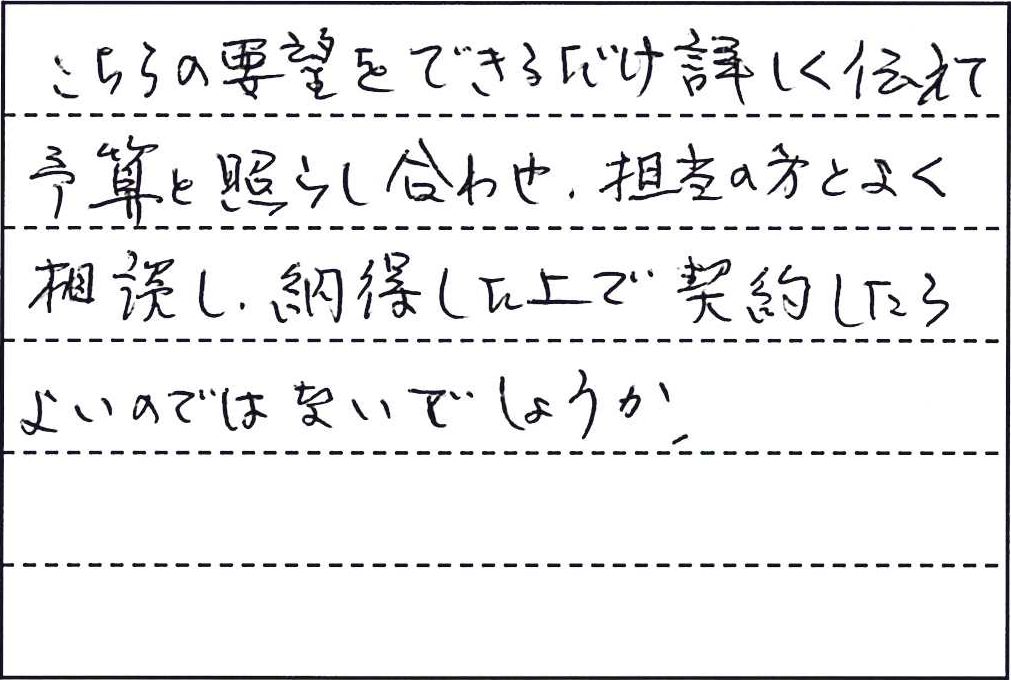 こちらの要望をできるだけ詳しく伝えて
予算と照らし合わせ、担当の方とよく
相談し、納得した上で契約したら
よいのではないでしょうか、